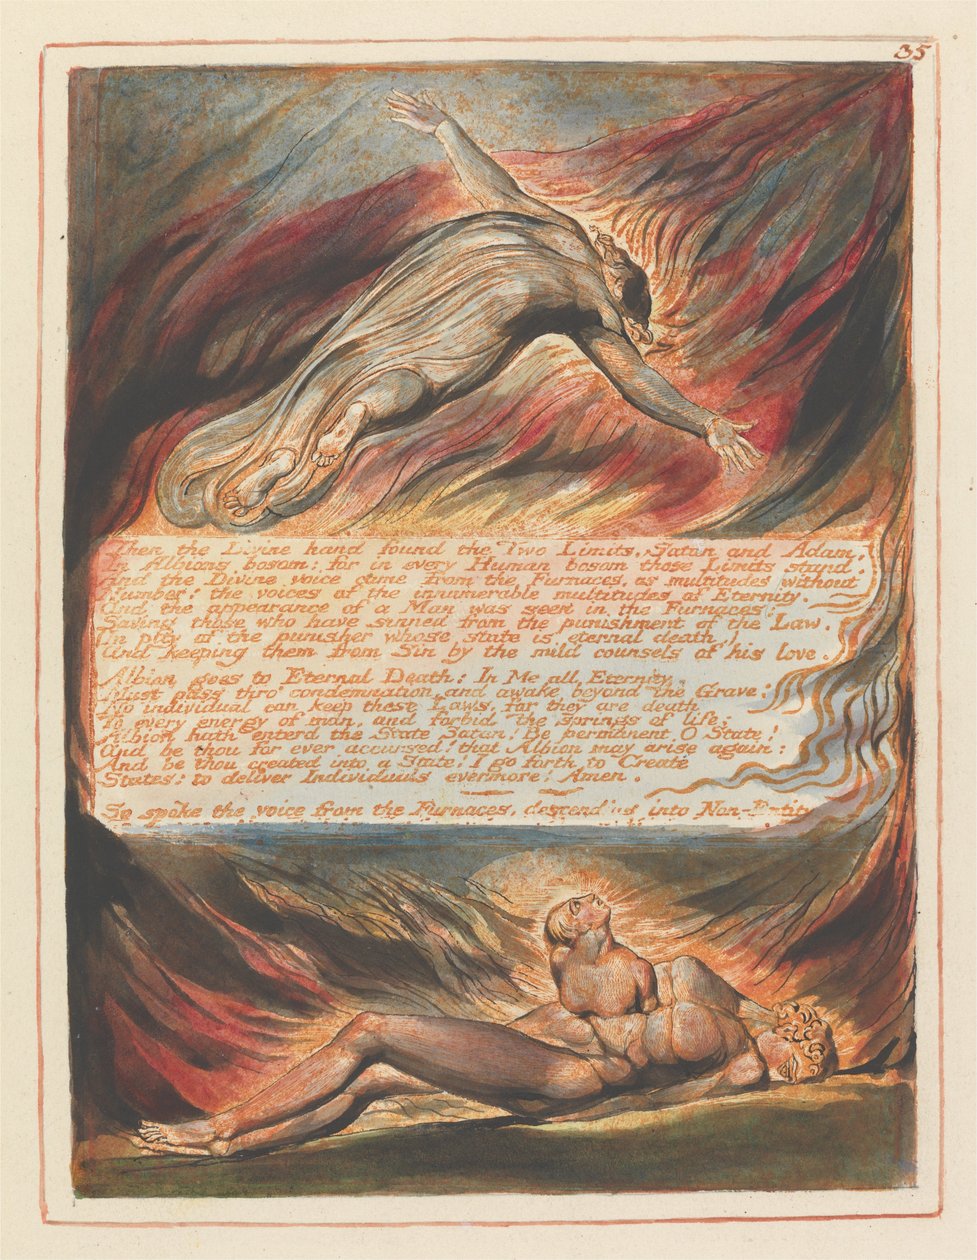 35
Then the Divine hand found the Two Limits, Satan and Adam,
In Albions bosom: for in every Human bosom those Limits stand.
And the Divine voice came from the Furnaces, as multitudes without
Number! the voices of the innumerable multitudes of Eternity.
And the appearance of a Man was seen in the Furnaces;
Saving those who have sinned from the punishment of the Law,
(In pity of the punisher whose state is eternal death,)
And keeping them from Sin by the mild counsels of his love.
Albion goes to Eternal Death: In Me all Eternity.
Must pass thro' condemnation, and awake beyond the Grave:
No individual can keep these Laws, for they are death
To every energy of man, and forbid the springs of life;
Albion hath enterd the State Satan! Be permanent O State!
And be thou for ever accursed! that Albion may arise again:
And be thou created into a State! I go forth to Create
States: to deliver Individuals evermore! Amen.
So spoke the voice from the Furnaces, descending into Non-Entity